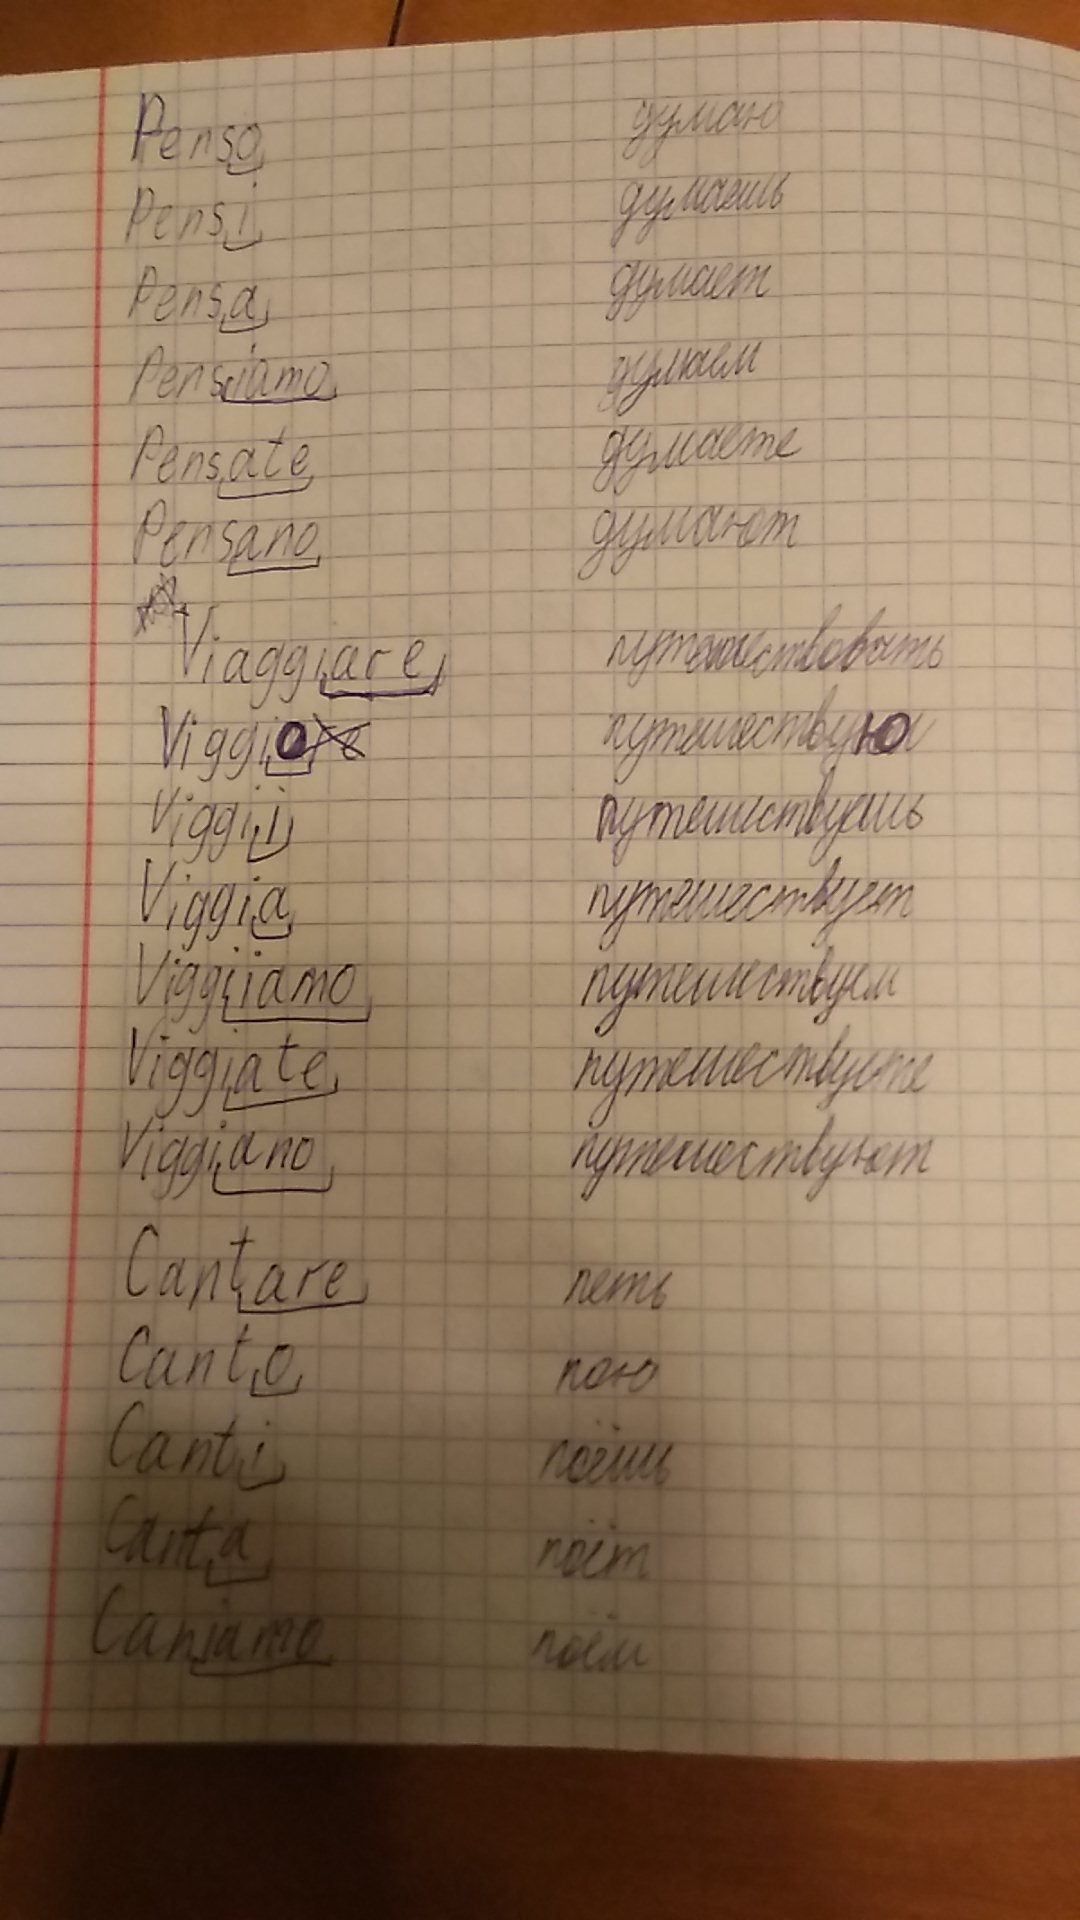 Penso думаю
Pensi думаешь
Pensa думает
Pensiamo думаем
Pensate думаете
Pensano думают
Viaggiare путешествовать
Viggio путешествую
Viggii путешествуешь
Viggia путешествует
Viggiiamo путешествуем
Viggiate путешествуете
Viggiano путешествуют
Cantare петь
Canto пою
Canti поёшь
Canta поёт
Caniamo поём